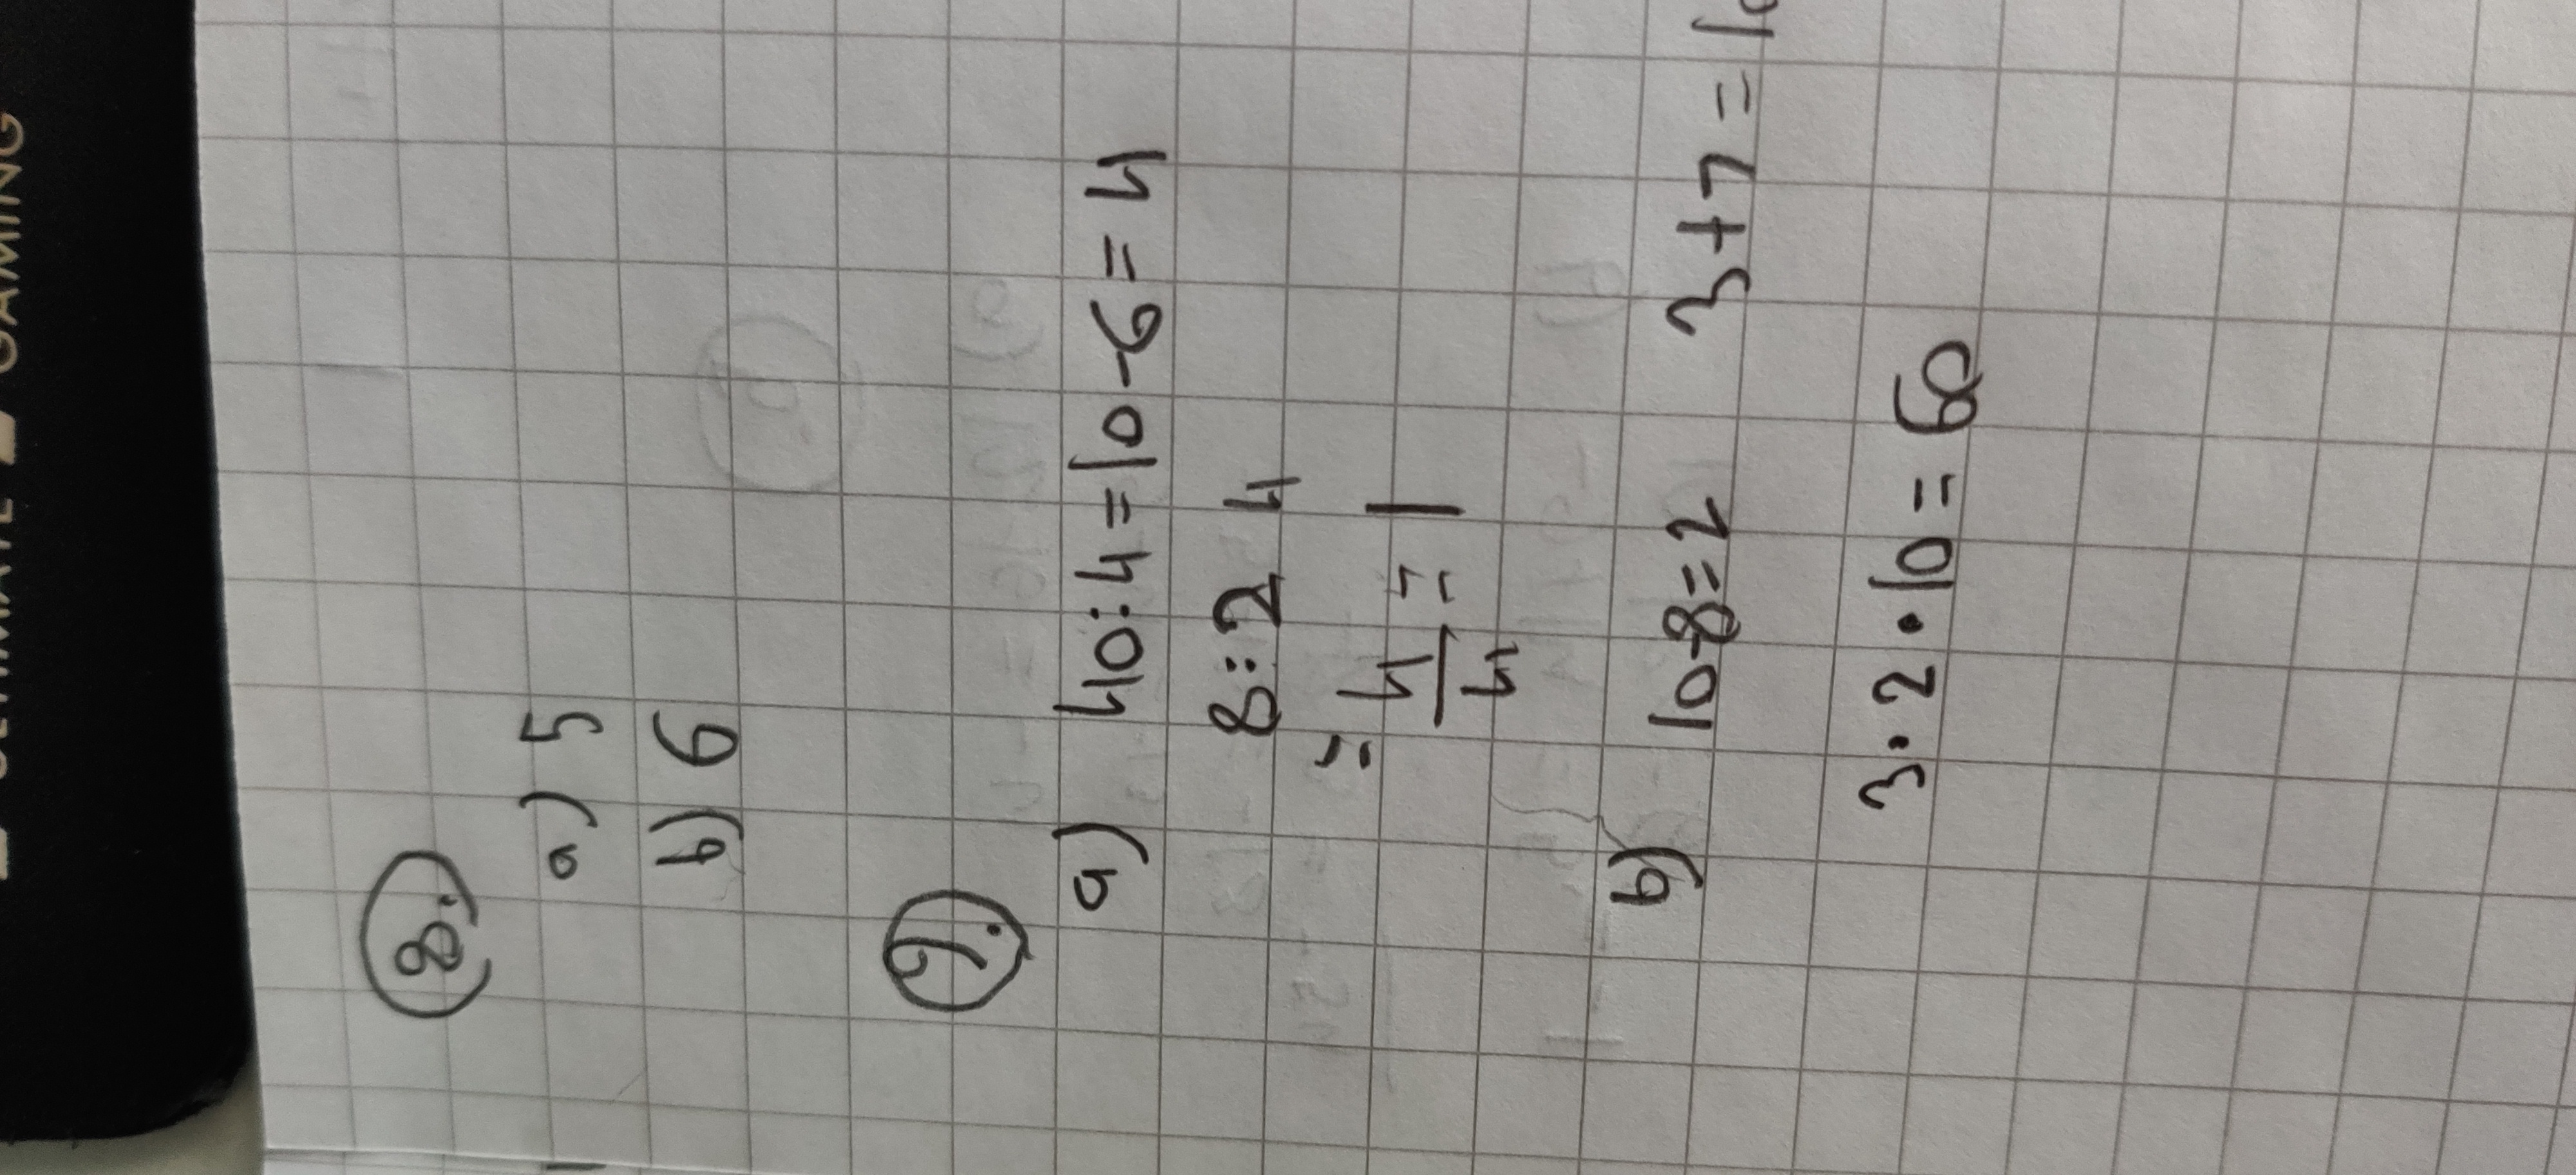 ULTIMATE GAMING
8.
a) 5
b) 6
9.
a) 40:4=10-6=4
8:2 4
= 4/4 = 1
b) 10-8=2 3+7=10
3·2·10=60